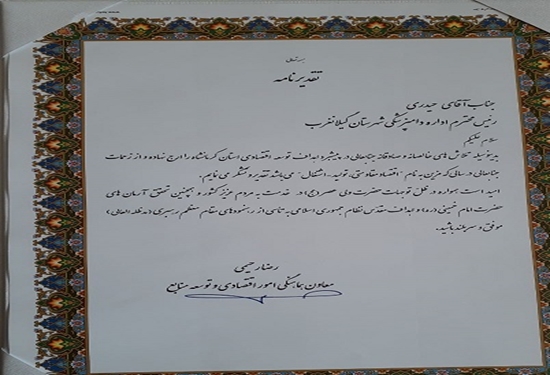 بسمه تعالی
تقدیرنامه
جناب آقای حیدری
رئیس محترم اداره دامپزشکی شهرستان گیلانغرب
سلام علیکم
بدینوسیله تلاش های خالصانه و صادقانه جنابعالی در پیشبرد اهداف توسعه اقتصادی استان کرمانشاه را ارج نهاده و از زحمات
جنابعالی در سالی که مزین به نام "اقتصاد مقاومتی، تولید - اشتغال" می باشد تقدیر و تشکر می نمایم.
امید است همواره در ظل توجهات حضرت ولی عصر (عج) در خدمت به مردم عزیز کشور و همچنین تحقق آرمان های
حضرت امام خمینی (ره) و اهداف مقدس نظام جمهوری اسلامی به تاسی از رهنمودهای مقام معظم رهبری (مدظله العالی)
موفق و سربلند باشید.
رضا رحیمی
معاون هماهنگی امور اقتصادی و توسعه منابع